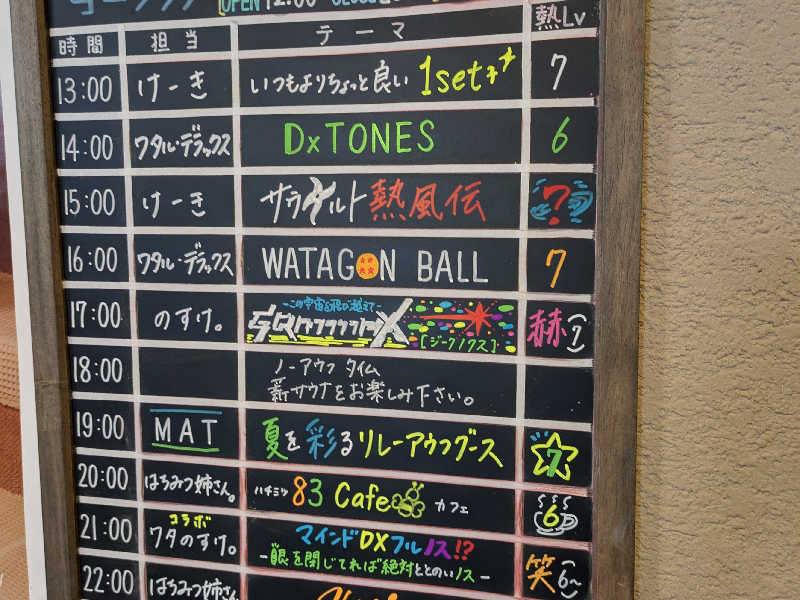 OPEN 12:00
時間 担当 テーマ 熱Lv
13:00 けーき いつもよりちょっと良い 1setネ 7
14:00 ワタル・デラックス DxTONES 6
15:00 けーき サラマルト 熱風伝 ?
16:00 ワタル・デラックス WATAGON BALL 7
17:00 のすけ。 -この宇宙を飛び越えて- [ジークノクス] 赫(7)
18:00 ノーアウフ タイム
薪サウナをお楽しみ下さい。
19:00 MAT 夏を彩るリレーアウフグース 7
20:00 はちみつ姉さん。 ハチミツ 83 Cafe カフェ 6
21:00 コラボ ワタのすけ。 マインドDXフルノス!?
-眼を閉じてれば絶対ととのいノス- 笑(6~)
22:00 はちみつ姉さん。